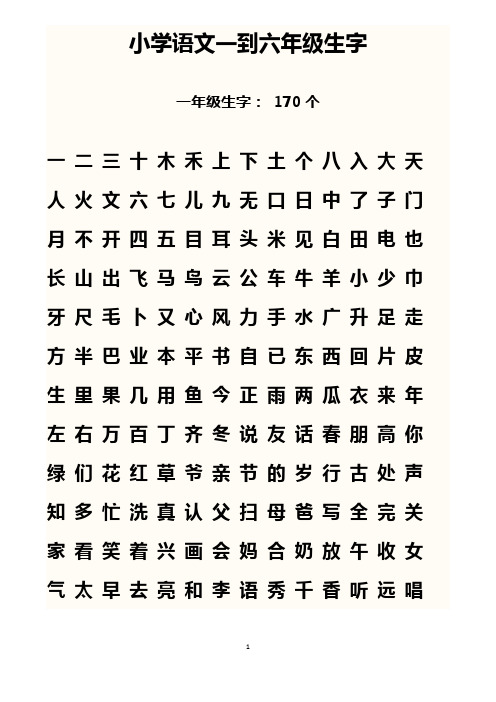 小学语文一到六年级生字
一年级生字： 170 个
一 二 三 十 木 禾 上 下 土 个 八 入 大 天
人 火 文 六 七 儿 九 无 口 日 中 了 子 门
月 不 开 四 五 目 耳 头 米 见 白 田 电 也
长 山 出 飞 马 鸟 云 公 车 牛 羊 小 少 巾
牙 尺 毛 卜 又 心 风 力 手 水 广 升 足 走
方 半 巴 业 本 平 书 自 已 东 西 回 片 皮
生 里 果 几 用 鱼 今 正 雨 两 瓜 衣 来 年
左 右 万 百 丁 齐 冬 说 友 话 春 朋 高 你
绿 们 花 红 草 爷 亲 节 的 岁 行 古 处 声
知 多 忙 洗 真 认 父 扫 母 爸 写 全 完 关
家 看 笑 着 兴 画 会 妈 合 奶 放 午 收 女
气 太 早 去 亮 和 李 语 秀 千 香 听 远 唱
1